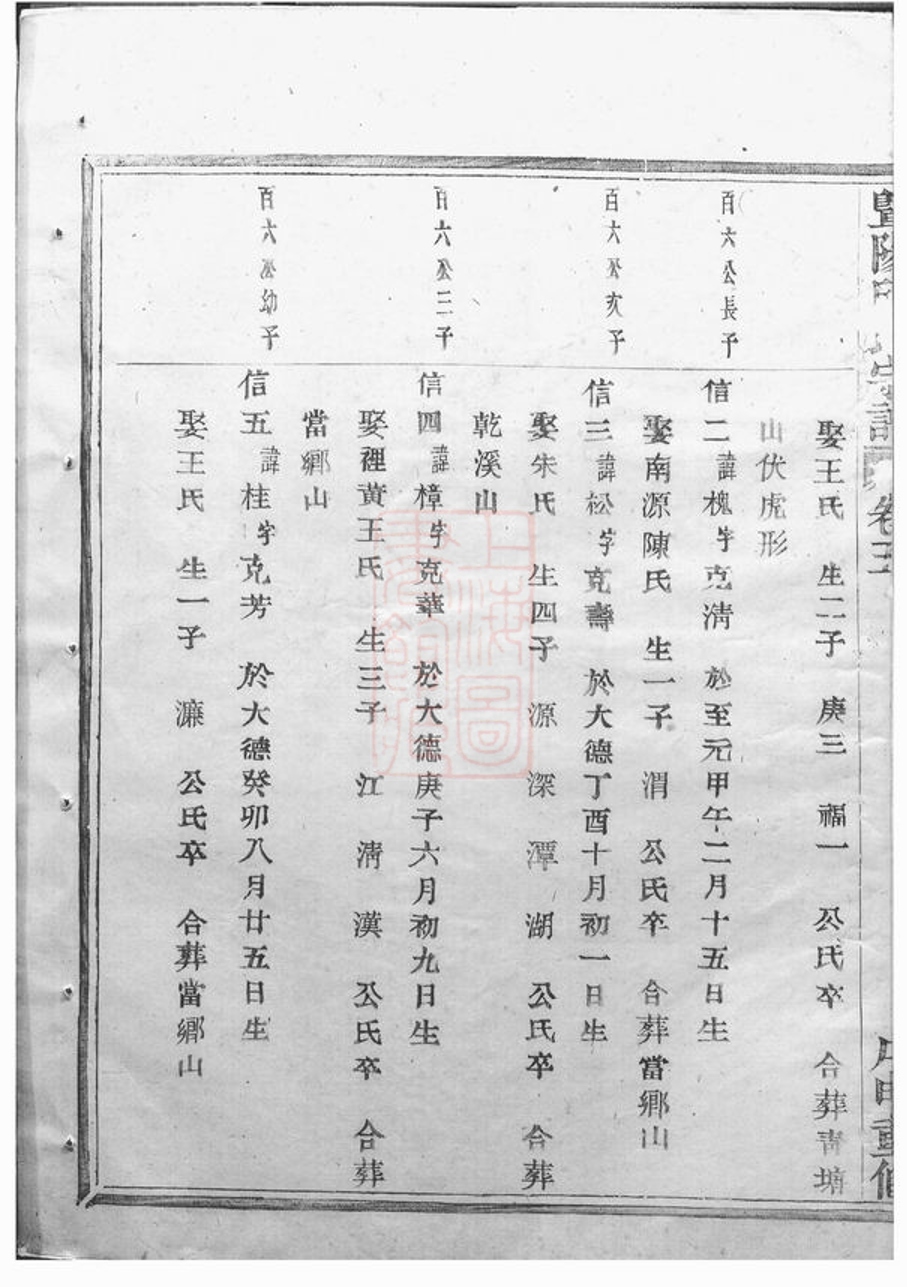 暨陽
宗譜 卷三
重修
娶王氏 生二子 庚三 福一 公氏卒 合葬靑塘
山伏虎形
百六公長子
信二諱槐字克淸 於至元甲午二月十五日生
娶南源陳氏 生一子 渭 公氏卒 合葬當鄉山
百六公次子
信三諱松字克壽 於大德丁酉十月初一日生
娶朱氏 生四子 源 深 潭 湖 公氏卒 合葬
乾溪山
百六公三子
信四諱樟字克華 於大德庚子六月初九日生
娶裡黃王氏 生三子 江 淸 漢 公氏卒 合葬
當鄉山
百六公幼子
信五諱桂字克芳 於大德癸卯八月廿五日生
娶王氏 生一子 濂 公氏卒 合葬當鄉山
上海圖